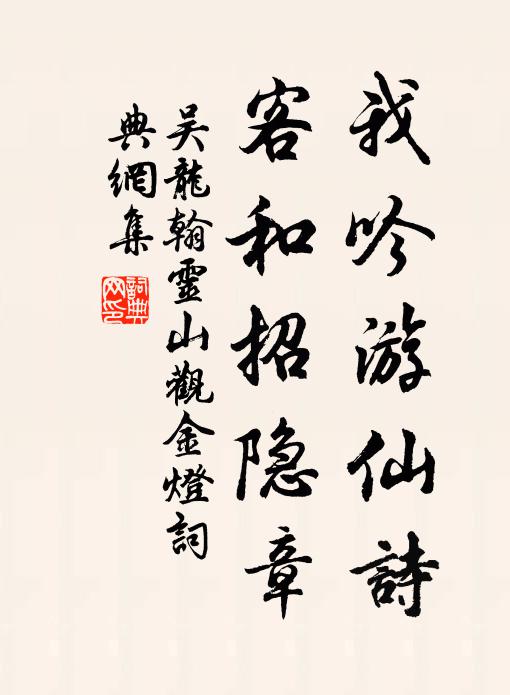 我吟游仙詩
客和招隐章
吴龍翰靈山觀金燈詞
典網集
詞典
网印